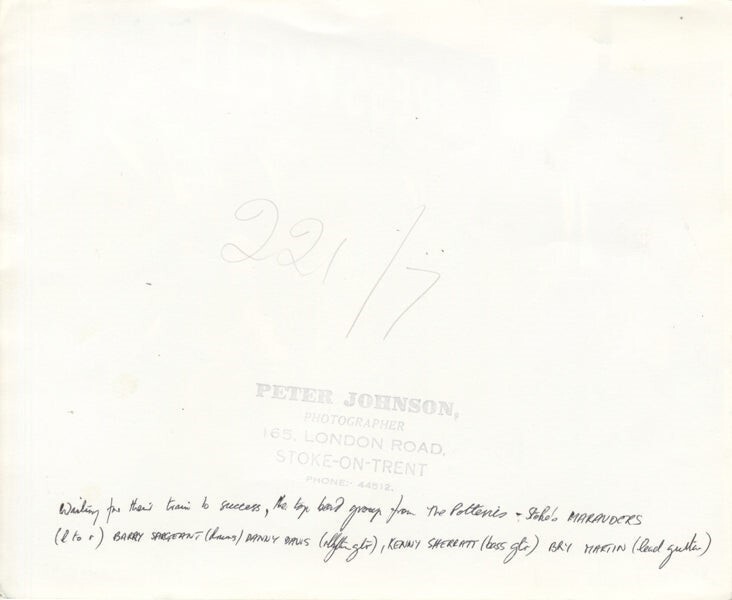 221/7
PETER JOHNSON,
PHOTOGRAPHER
165, LONDON ROAD,
STOKE-ON-TRENT
PHONE:- 44512.
Waiting for their train to success, the top beat group from The Potteries - Stoke's MARAUDERS
(l to r) BARRY SARGEANT (drums) DANNY DAVIS (rhythm gtr), KENNY SHERRATT (bass gtr) BRY MARTIN (lead guitar)